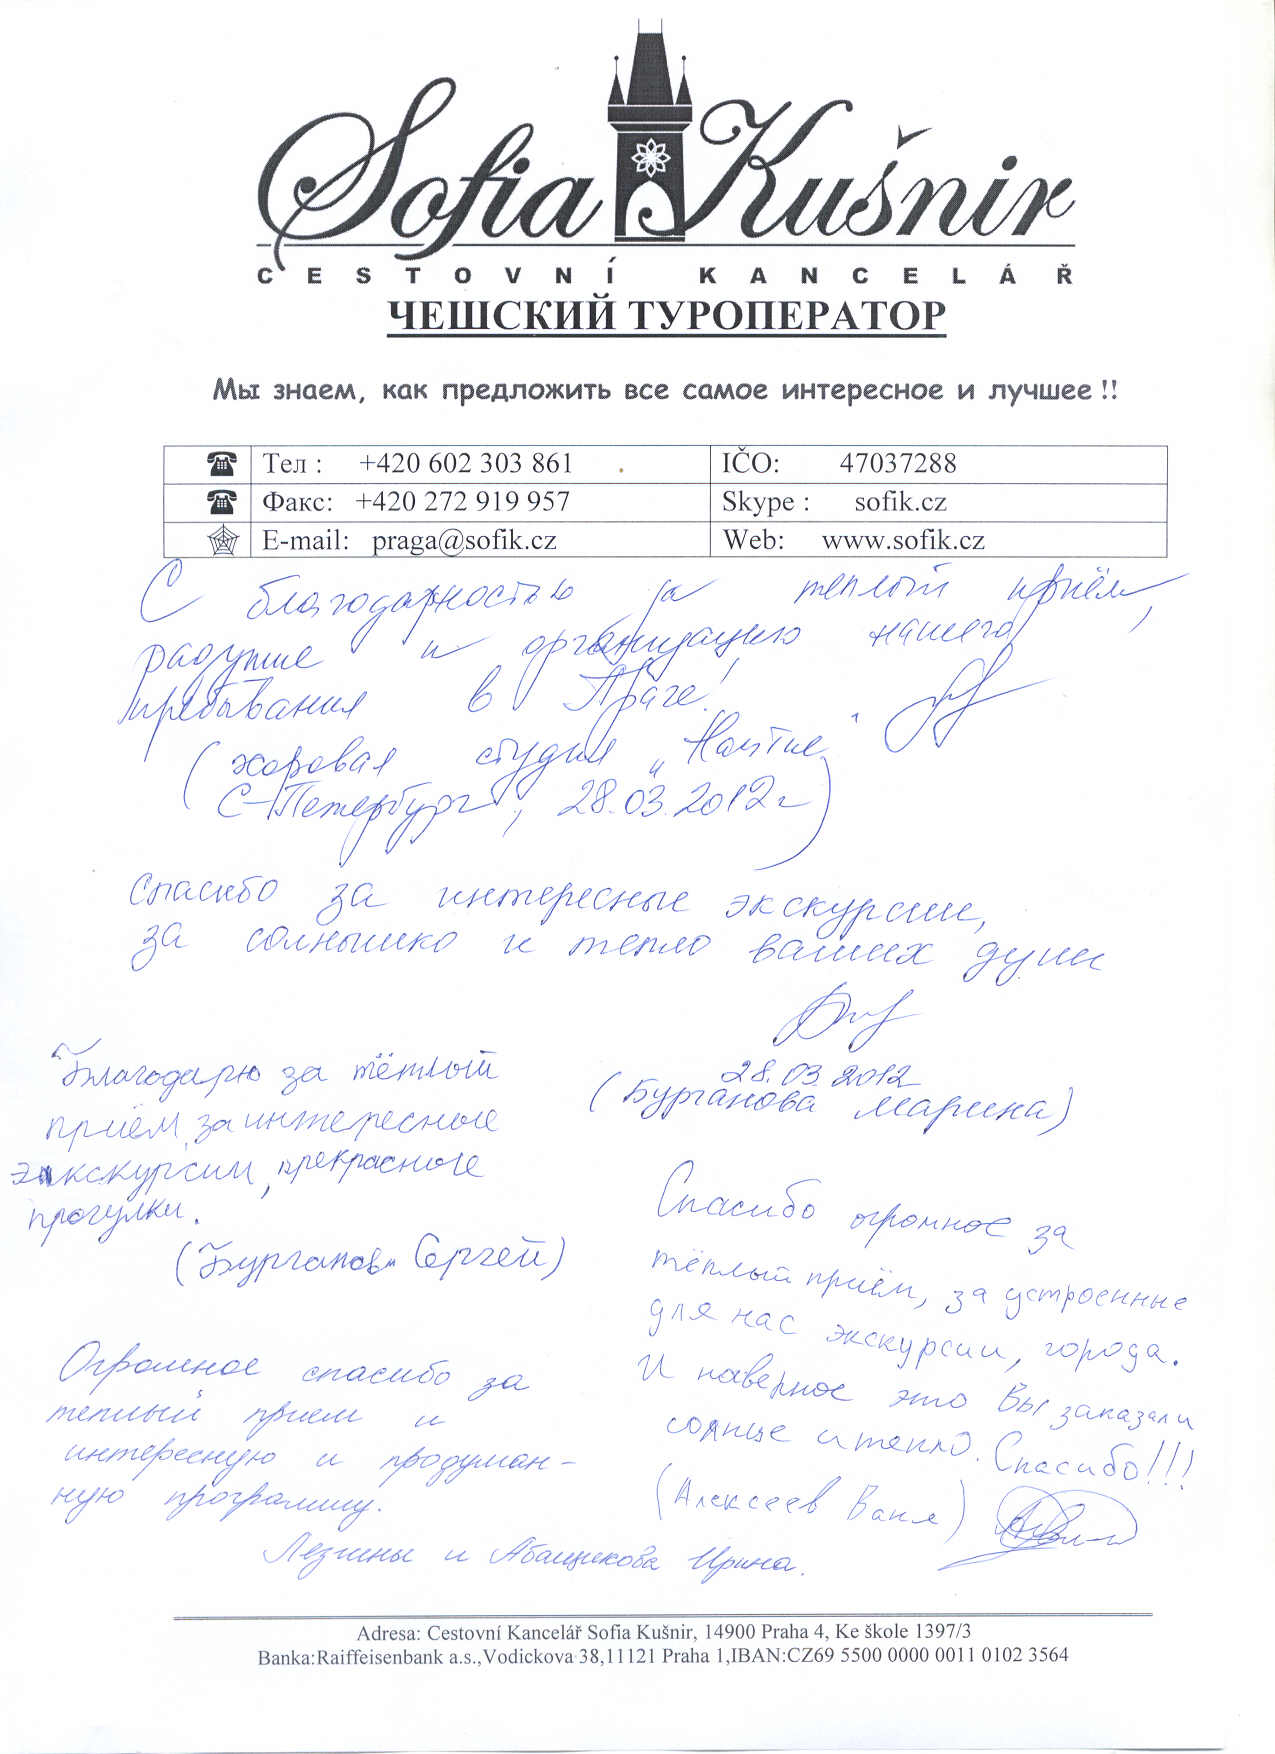 Sofia Kušnir
CESTOVNÍ KANCELÁŘ
ЧЕШСКИЙ ТУРОПЕРАТОР
Мы знаем, как предложить все самое интересное и лучшее !!
Тел : +420 602 303 861 IČO: 47037288
Факс: +420 272 919 957 Skype : sofik.cz
E-mail: praga@sofik.cz Web: www.sofik.cz
С благодарностью за теплый приём,
радушие и организацию нашего
пребывания в Праге!
(хоровая студия
С-Петербург, 28.03.2012г)
Спасибо за интересные экскурсии,
за солнышко и тепло ваших души
28.03.2012
(Бурганова Марина)
Благодарю за тёплый
приём, за интересные
экскурсии, прекрасные
прогулки.
(Бурганов Сергей)
Спасибо огромное за
тёплый приём, за устроенные
для нас экскурсии, города.
И наверное это Вы заказали
солнце и тепло. Спасибо!!!
(Алексеев Ваня)
Огромное спасибо за
теплый прием и
интересную и продуман-
ную программу.
Лезгины и Абащикова Ирина.
Adresa: Cestovní Kancelář Sofia Kušnir, 14900 Praha 4, Ke škole 1397/3
Banka:Raiffeisenbank a.s.,Vodickova 38,11121 Praha 1,IBAN:CZ69 5500 0000 0011 0102 3564